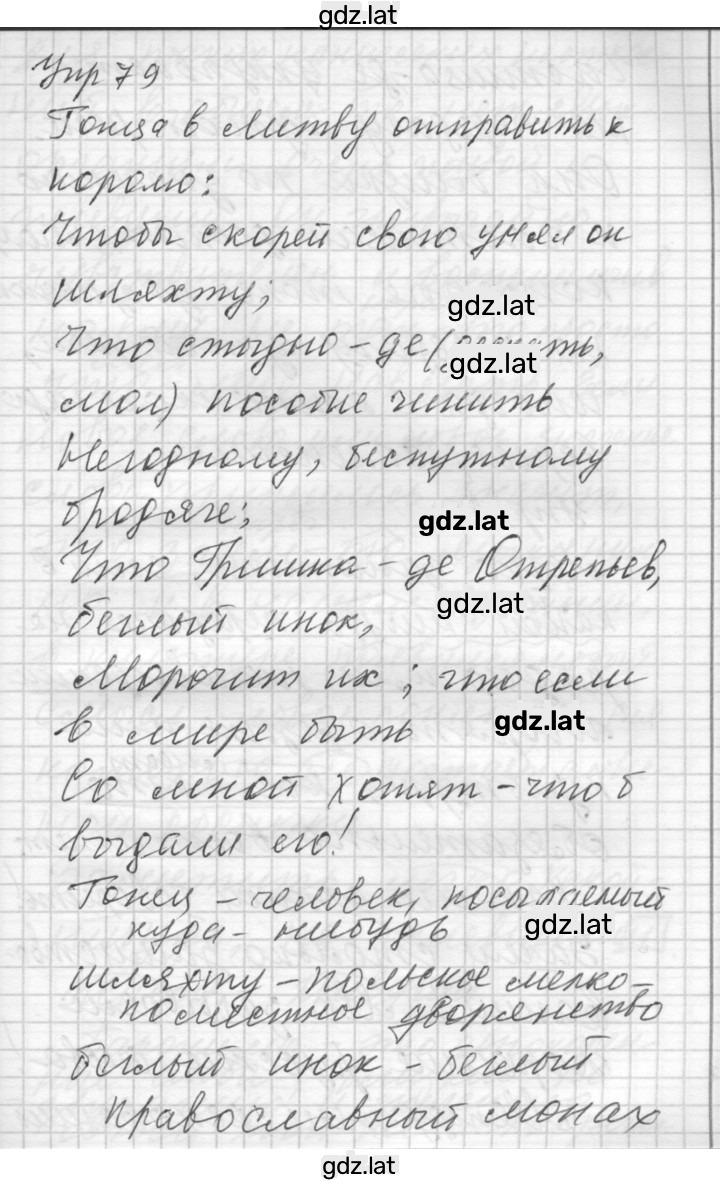 gdz.lat
Упр 79
Гонца в Литву отправить к
королю:
Чтобы скорей свою унял он
шляхту;
gdz.lat
Что стыдно-де (
gdz.lat
мол) пособие чинить
Негодному, беспутному
бродяге;
gdz.lat
Что Гришка-де Отрепьев,
gdz.lat
беглый инок,
Морочит их; что если
в мире быть
gdz.lat
Со мной хотят - что б
выдали его!
Гонец - человек, посылаемый
куда-нибудь
gdz.lat
шляхту - польское мелко-
поместное дворянство
беглый инок - беглый
православный монах
gdz.lat